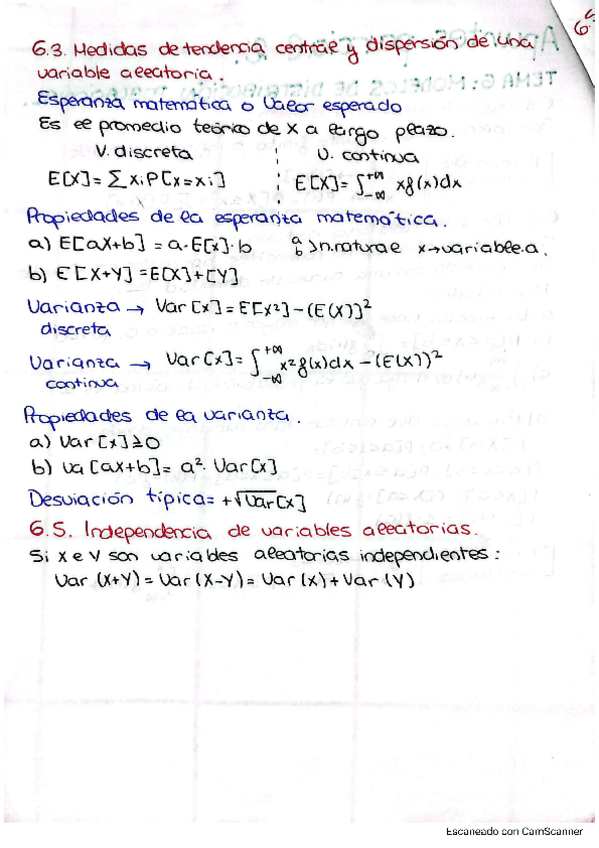 6.5
6.3. Medidas de tendencia central y dispersión de una
variable aleatoria.
Esperanza matemática o Valor esperado
Es el promedio teórico de X a largo plazo.
V. discreta
V. continua
E[X] = ∑ xi P[X=xi]
E[X] = ∫_{-∞}^{+∞} x f(x)dx
Propiedades de la esperanza matemática.
a) E[aX+b] = a·E[x]·b a b > n.natural x→variable.a.
b) E[X+Y] = E[X]+[Y]
Varianza → Var[x] = E[x²] - (E(X))²
discreta
Varianza → Var[x] = ∫_{-∞}^{+∞} x² f(x)dx - (E(X))²
continua
Propiedades de la varianza.
a) Var[x] ≥ 0
b) Va[ax+b] = a²· Var[x]
Desviación típica = +√Var[x]
6.5. Independencia de variables aleatorias.
Si X e Y son variables aleatorias independientes:
Var (X+Y) = Var (X-Y) = Var (X) + Var (Y)
Escaneado con CamScanner